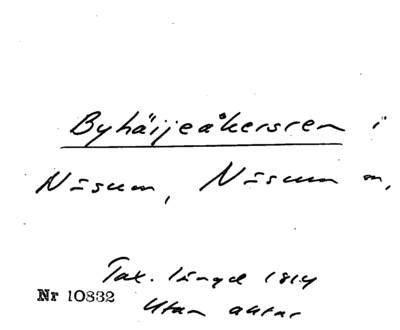 Byhäijeåkersren i
Näsum, Näsum n,
Tax. längd 1814
Nr 10832
Utan antar